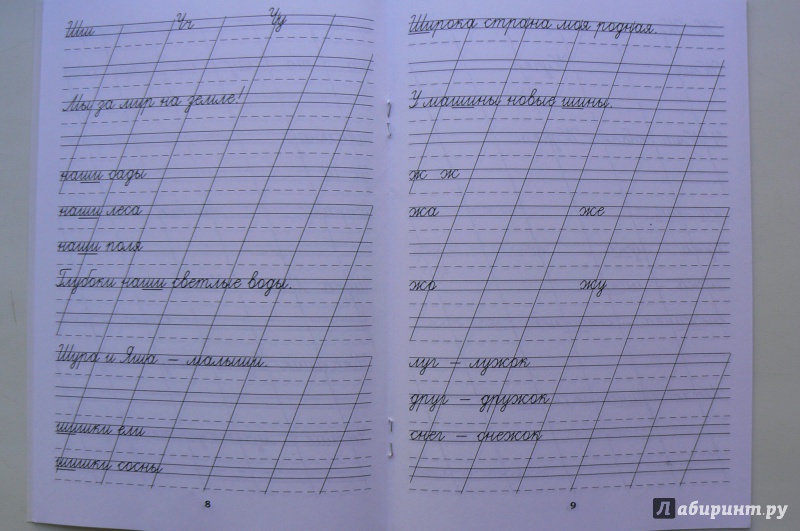 Мы за мир на земле!
наши сады
наши леса
наши поля
Глубоки наши светлые воды.
Шура и Яша — малыши.
шишки ели
шишки сосны
8
Широка страна моя родная.
У машины новые шины.
ж ж
жа же
жо жу
луг — лужок
друг — дружок
снег — снежок
9
Лабиринт.ру